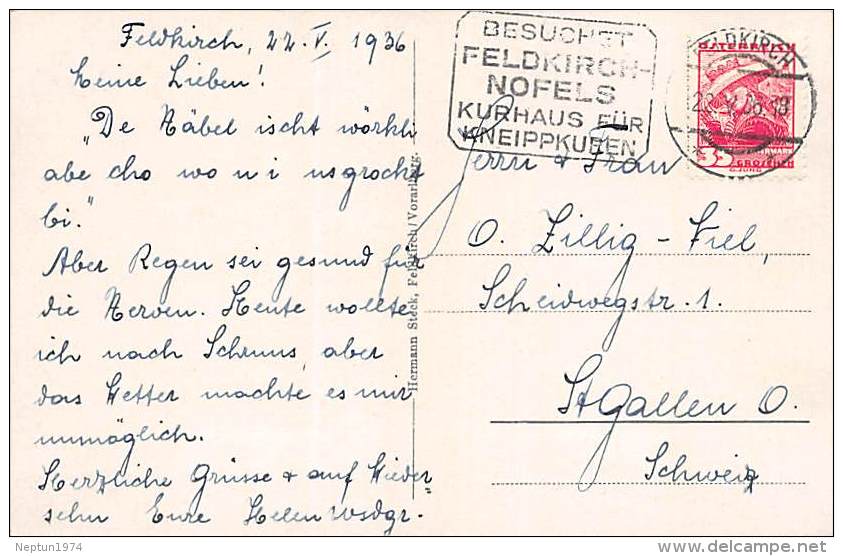 Feldkirch, 22. V. 1936
Meine Lieben!
„De Näbel ischt wörkli
abe cho wo n i usgrockt
bi."
Aber Regen sei gesund für
die Nerven. Heute wollte
ich nach Schruns, aber
das Wetter machte es mir
unmöglich.
Herzliche Grüsse & auf Wieder
sehn Eure Helen
Hermann Steck, Feldkirch/Vorarlberg.
BESUCHET
FELDKIRCH-
NOFELS
KURHAUS FÜR
KNEIPPKUREN
FELDKIRCH
ÖSTERREICH
35
GROSCHEN
Herrn & Frau
O. Zillig-Fiel,
Scheidwegstr. 1.
St Gallen O.
Schweiz
Neptun1974
www.delcampe.net